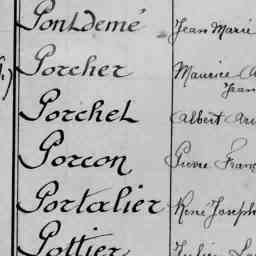 Pontdemé Jean Marie
Porcher Maurice
Jean
Porchel Albert
Porcon Pierre Fran
Portalier René Joseph
Pottier Julien